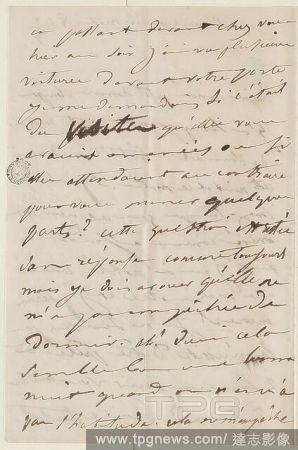 en passant devant chez vous
hier au soir j'ai vu plusieurs
voitures devant votre porte
je me demandais si c'était
des visites qu'elles vous
avaient amenées ou si
elles attendaient au contraire
pour vous mener quelque
part? cette question restée
sans réponse encore toujours
mais je dois avouer qu'elle ne
m'a pas empêchée de
dormir.
semble
nuit quand on n'en a
pas l'habitude. cela
TPG
www.tpgnews.com/ 達志影像